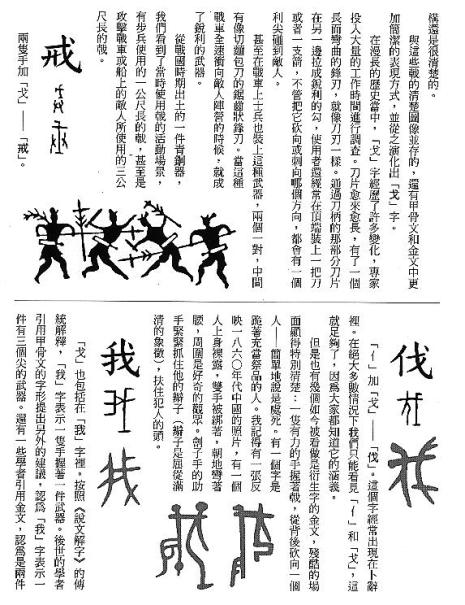 構還是很清楚的。
與這些戟的清楚圖像並存的，還有甲骨文和金文中更
加簡潔的表現方式，並從之演化出「戈」字。
在漫長的歷史當中，「戈」字經歷了許多變化，專家
投入大量的工作時間進行調查。刀片愈來愈長，有了一個
長而彎曲的鋒刃，就像刀刃一樣。通過刀柄的那部分刀片
在另一邊拉成銳利的勾，使用者還經常在頂端裝上一把刀
或者一支箭，不管把它砍向或刺向哪個方向，都會有一個
利尖碰到敵人。
甚至在戰車上士兵也裝上這種武器，兩個一對，中間
有像切麵包刀的鋸齒狀鋒刃。當這種
戰車全速衝向敵人陣營的時候，就成
了銳利的武器。
從戰國時期出土的一件青銅器，
我們看到了當時使用戟的活動場景，
有步兵使用的一公尺長的戟，甚至是
攻擊戰車或船上的敵人所使用的三公
尺長的戟。
戒
兩隻手加「戈」——「戒」。
伐
「亻」加「戈」——「伐」。這個字經常出現在卜辭
裡。在絕大多數情況下我們只能看見「亻」和「戈」，這
就足夠了，因為大家都知道它的涵義。
但是也有幾個如今被看做是衍生字的金文，殘酷的場
面顯得特別清楚：一隻有力的手握著戟，從背後砍向一個
人——簡單地說是處死。有一個字是
跪著充當祭品的人。我記得有一張反
映一八六〇年代中國的照片，有一個
人上身裸露，雙手被綁著，朝地彎著
腰，周圍是好奇的觀眾。劊子手的助
手緊緊抓住他的辮子（辮子是屈從滿
清的象徵），扶住犯人的頭。
我
「戈」也包括在「我」字裡。按照《說文解字》的傳
統解釋，「我」字表示一隻手握著一件武器。後世的學者
引用甲骨文的字形提出另外的建議，認為「我」字表示一
件有三個尖的武器。還有一些學者引用金文，認為是兩件